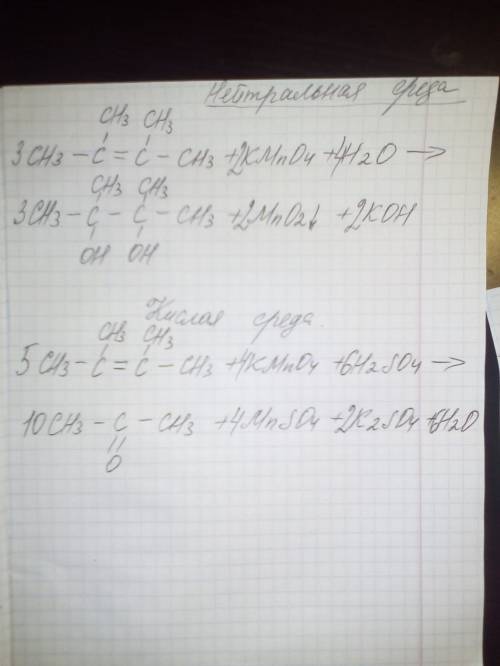 Нейтральная среда
CH3 CH3
3CH3 - C = C - CH3 + 2KMnO4 + 4H2O →
CH3 CH3
3CH3 - C - C - CH3 + 2MnO2↓ + 2KOH
OH OH
Кислая среда.
CH3 CH3
5CH3 - C = C - CH3 + 4KMnO4 + 6H2SO4 →
10CH3 - C - CH3 + 4MnSO4 + 2K2SO4 + 6H2O
O